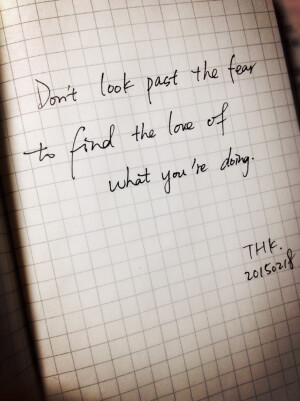 Don't look past the fear
to find the love of
what you're doing.
THK.
20150218